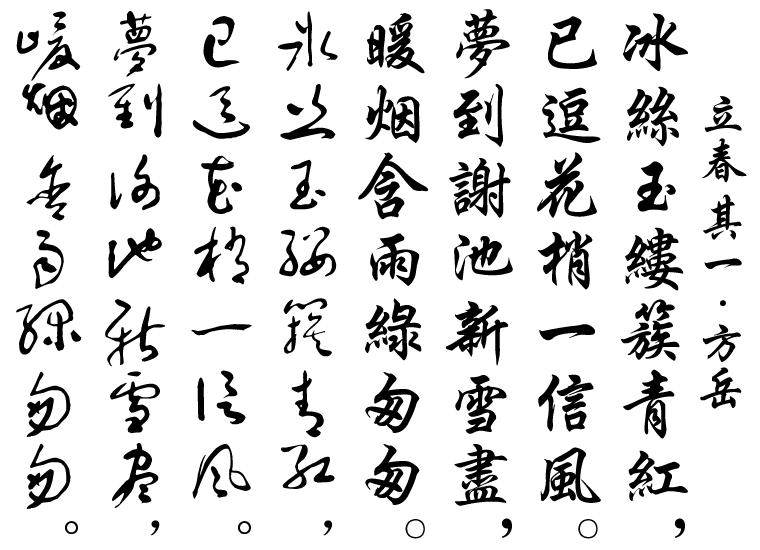 立春其一·方岳
冰絲玉縷簇青紅，
已逗花梢一信風。
夢到謝池新雪盡，
暖烟含雨綠匆匆。
冰丝玉缕簇青红，
已逗花梢一信风。
夢到谢池新雪尽，
暖烟含雨绿匆匆。